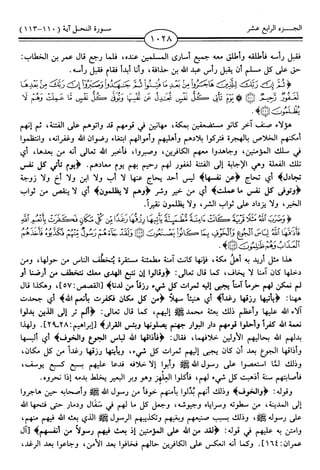 الجـــزء الرابع عشر
١٠٢٨
سورة النحل آية (١١٠-١١٣)
فقبل رأسه فأطلقه وأطلق معه جميع أسارى المسلمين عنده، فلما رجع قال عمر بن الخطاب:
حق على كل مسلم أن يقبل رأس عبد الله بن حذافة، وأنا أبدأ فقام فقبل رأسه.
هؤلاء صنف آخر كانوا مستضعفين بمكة، مهانين في قومهم قد واتوهم على الفتنة، ثم إنهم
أمكنهم الخلاص بالهجرة فتركوا بلادهم وأهليهم وأموالهم ابتغاء رضوان الله وغفرانه، وانتظموا
في سلك المؤمنين، وجاهدوا معهم الكافرين، وصبروا، فأخبر الله تعالى أنه من بعدها، أي
تلك الفعلة وهي الإجابة إلى الفتنة لغفور لهم رحيم بهم يوم معادهم. ﴿يوم تأتي كل نفس
تجادل﴾ أي تحاج ﴿عن نفسها﴾ ليس أحد يحاج عنها لا أب ولا ابن ولا أخ ولا زوجة
﴿وتوفى كل نفس ما عملت﴾ أي من خير وشر ﴿وهم لا يظلمون﴾ أي لا ينقص من ثواب
الخير، ولا يزداد على ثواب الشر، ولا يظلمون نقيراً.
هذا مثل أريد به أهل مكة، فإنها كانت آمنة مطمئنة مستقرة يُتخطف الناس من حولها، ومن
دخلها كان آمنا لا يخاف، كما قال تعالى: ﴿وقالوا إن نتبع الهدى معك نتخطف من أرضنا أو
لم نمكن لهم حرماً آمناً يجبى إليه ثمرات كل شيء رزقاً من لدنا﴾ [القصص:٥٧]، وهكذا قال
ههنا: ﴿يأتيها رزقها رغداً﴾ أي هنيئاً سهلاً ﴿من كل مكان فكفرت بأنعم الله﴾ أي جحدت
آلاء الله عليها وأعظم ذلك بعثة محمد ﷺ إليهم، كما قال تعالى: ﴿ألم تر إلى الذين بدلوا
نعمة الله كفراً وأحلوا قومهم دار البوار جهنم يصلونها وبئس القرار﴾ [إبراهيم:٢٨-٢٩]. ولهذا
بدلهم الله بحاليهم الأولين خلافهما، فقال: ﴿فأذاقها الله لباس الجوع والخوف﴾ أي ألبسها
وأذاقها الجوع بعد أن كان يجبى إليهم ثمرات كل شيء، ويأتيها رزقها رغداً من كل مكان،
وذلك لمّا استعصوا على رسول الله ﷺ وأبوا إلا خلافه فدعا عليهم بسبع كسبع يوسف،
فأصابتهم سنة أذهبت كل شيء لهم، فأكلوا العلهز وهو وبر البعير يخلط بدمه إذا نحروه.
وقوله: ﴿والخوف﴾ وذلك أنهم بُدِّلوا بأمنهم خوفاً من رسول الله ﷺ وأصحابه حين هاجروا
إلى المدينة، من سطوته وسراياه وجيوشه، وجعل كل ما لهم في سَفَال ودمار حتى فتحها الله
على رسوله ﷺ، وذلك بسبب صنيعهم وبغيهم وتكذيبهم الرسول ﷺ الذي بعث الله فيهم منهم،
وامتن به عليهم في قوله: ﴿لقد من الله على المؤمنين إذ بعث فيهم رسولاً من أنفسهم﴾ [آل
عمران:١٦٤]. وكما أنه انعكس على الكافرين حالهم فخافوا بعد الأمن، وجاعوا بعد الرغد،